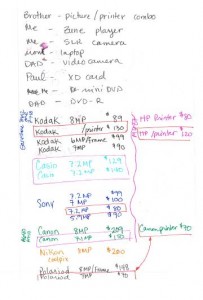 Brother - picture/printer combo
Me - Zune player
Me - SLR camera
Mom - laptop
DAD - video camera
Paul - XD card
Me - mini DVD
DAD - DVD-R
Kodak 8MP $89
Kodak /printer $130
Kodak 6MP/Frame $99
Kodak 7MP $90
HP Printer $80
HP Printer $120
Casio 7.2MP $129
Casio 7.2MP
Sony 7.2MP $99
7.2MP $100
7.2MP $80
$90
Canon 8MP $209
Canon 7.1MP $180
Canon printer $70
Nikon $200
Polaroid 8MP/Frame $148
Polaroid 7MP $70